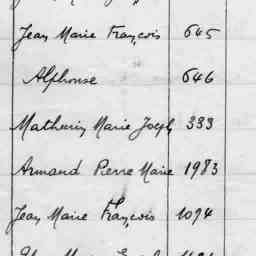 Jean Marie François 645
Alphonse 646
Mathurin Marie Joseph 333
Armand Pierre Marie 1983
Jean Marie François 1094